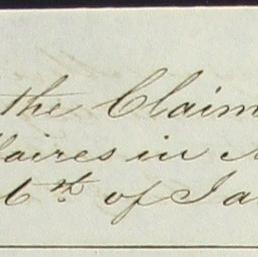 the Claim
laires in
6th of Ja